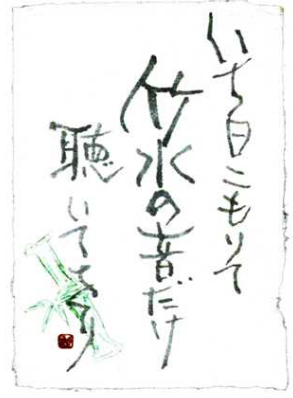 いち日こもりて
竹水の音だけ
聴いてをり